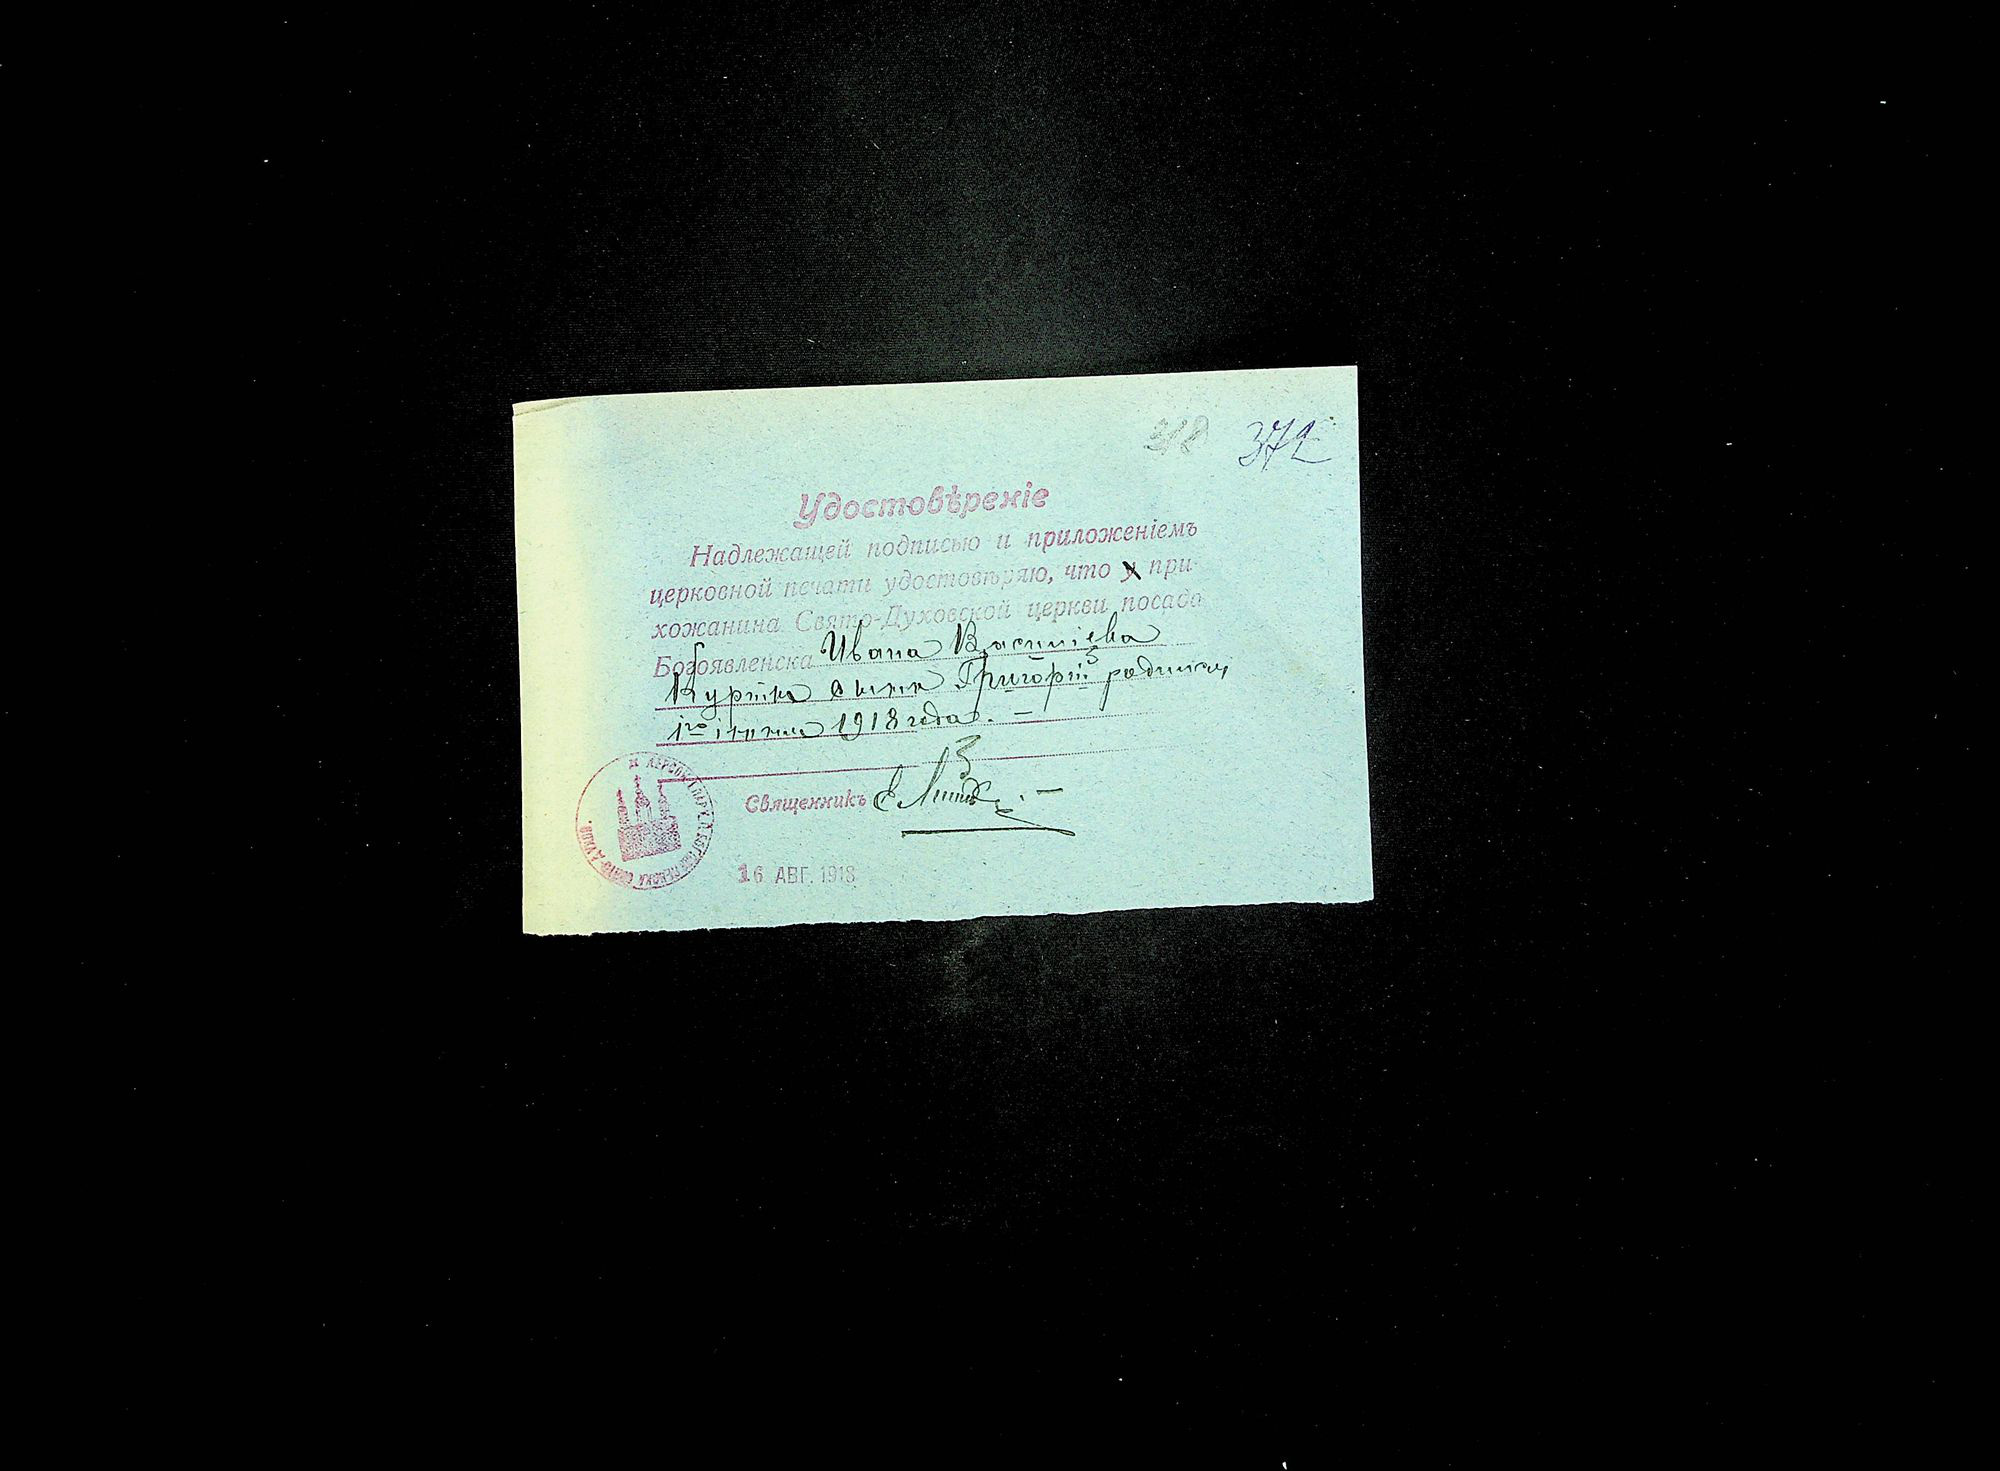 318 372
Удостовѣреніе
Надлежащей подписью и приложеніемъ
церковной печати удостовѣряю, что у при-
хожанина Свято-Духовской церкви посада
Богоявленска Ивана Василіева
сына Григорій родился
1го іюня 1918 года. —
Священникъ Е.
16 АВГ. 1918